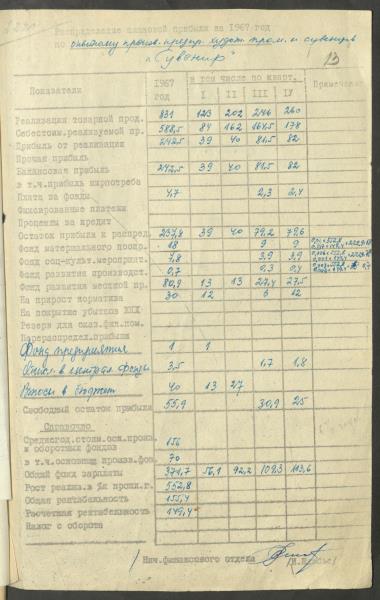 Распределение плановой прибыли за 1967 год
по опытному произв. предпр. худож. пром. и сувениров
"Сувенир"
13
Показатели 1967 год в том числе по кварт. I II III IV Примечание
Реализация товарной прод. 831 123 202 246 260
Себестоим. реализуемой пр. 588,5 84 162 164,5 178
Прибыль от реализации 242,5 39 40 81,5 82
Прочая прибыль
Балансовая прибыль 242,5 39 40 81,5 82
в т.ч. прибыль ширпотреба
Плата за фонды 4,7 2,3 2,4
Фиксированные платежи
Проценты за кредит
Остаток прибыли к распред. 237,8 39 40 79,2 79,6
Фонд материального поощр. 18 9 9
Фонд соц-культ. мероприят. 7,8 3,9 3,9
Фонд развития производст. 0,7 0,3 0,4
Фонд развития местной пр. 80,9 13 13 27,4 27,5
На прирост норматива 30 12 6 12
На покрытие убытков ЖКХ
Резерв для оказ. фин. пом.
Нераспределен. прибыли
Фонд предприятия 1 1
3,5 1,7 1,8
Взносы в бюджет 40 13 27
Свободный остаток прибыли 55,9 30,9 25
Справочно
Среднегод. стоим. осн. произв. и оборотных фондов 156
в т.ч. основных произв. фон. 70
Общий фонд зарплаты 371,7 56,1 92,2 109,3 113,6
Рост реализ. в %к прошл. г. 552,8
Общая рентабельность 155,4
Расчетная рентабельность 149,4
Налог с оборота
Нач. финансового отдела